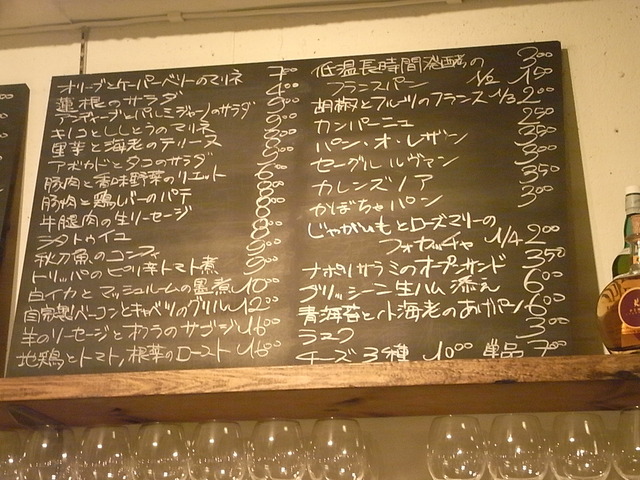 オリーブとケーパーベリーのマリネ 7⁰⁰
蓮根のサラダ 4⁰⁰
アンディーブとパルミジャーノのサラダ
キノコとししとうのマリネ
里芋と海老のテリーヌ
アボカドとタコのサラダ
豚肉と香味野菜のリエット
豚肉と鶏レバーのパテ 8⁰⁰
牛腿肉の生ソーセージ
ラタトゥイユ
秋刀魚のコンフィ
トリッパのピリ辛トマト煮 9⁰⁰
白イカとマッシュルームの墨煮 10⁰⁰
自家製ベーコンとキャベツのグリル 12⁰⁰
羊のソーセージとオクラのサブジ 16⁰⁰
地鶏とトマト、根菜のロースト 16⁰⁰
低温長時間発酵の 3⁰⁰
フランスパン 1/2 15⁰
胡椒とフルーツのフランス 1/3 2⁰⁰
カンパーニュ 25⁰
パン・オ・レザン 35⁰
セーグル ルヴァン 3⁰⁰
カレンズノア 35⁰
かぼちゃパン 3⁰⁰
じゃがいもとローズマリーの
フォカッチャ 1/4 2⁰⁰
ナポリサラミのオープンサンド 35⁰
グリッシーニ生ハム添え 6⁰⁰
青海苔と小海老のあげパン 6⁰⁰
ラスク 3⁰⁰
チーズ 3種 10⁰⁰ 単品 7⁰⁰